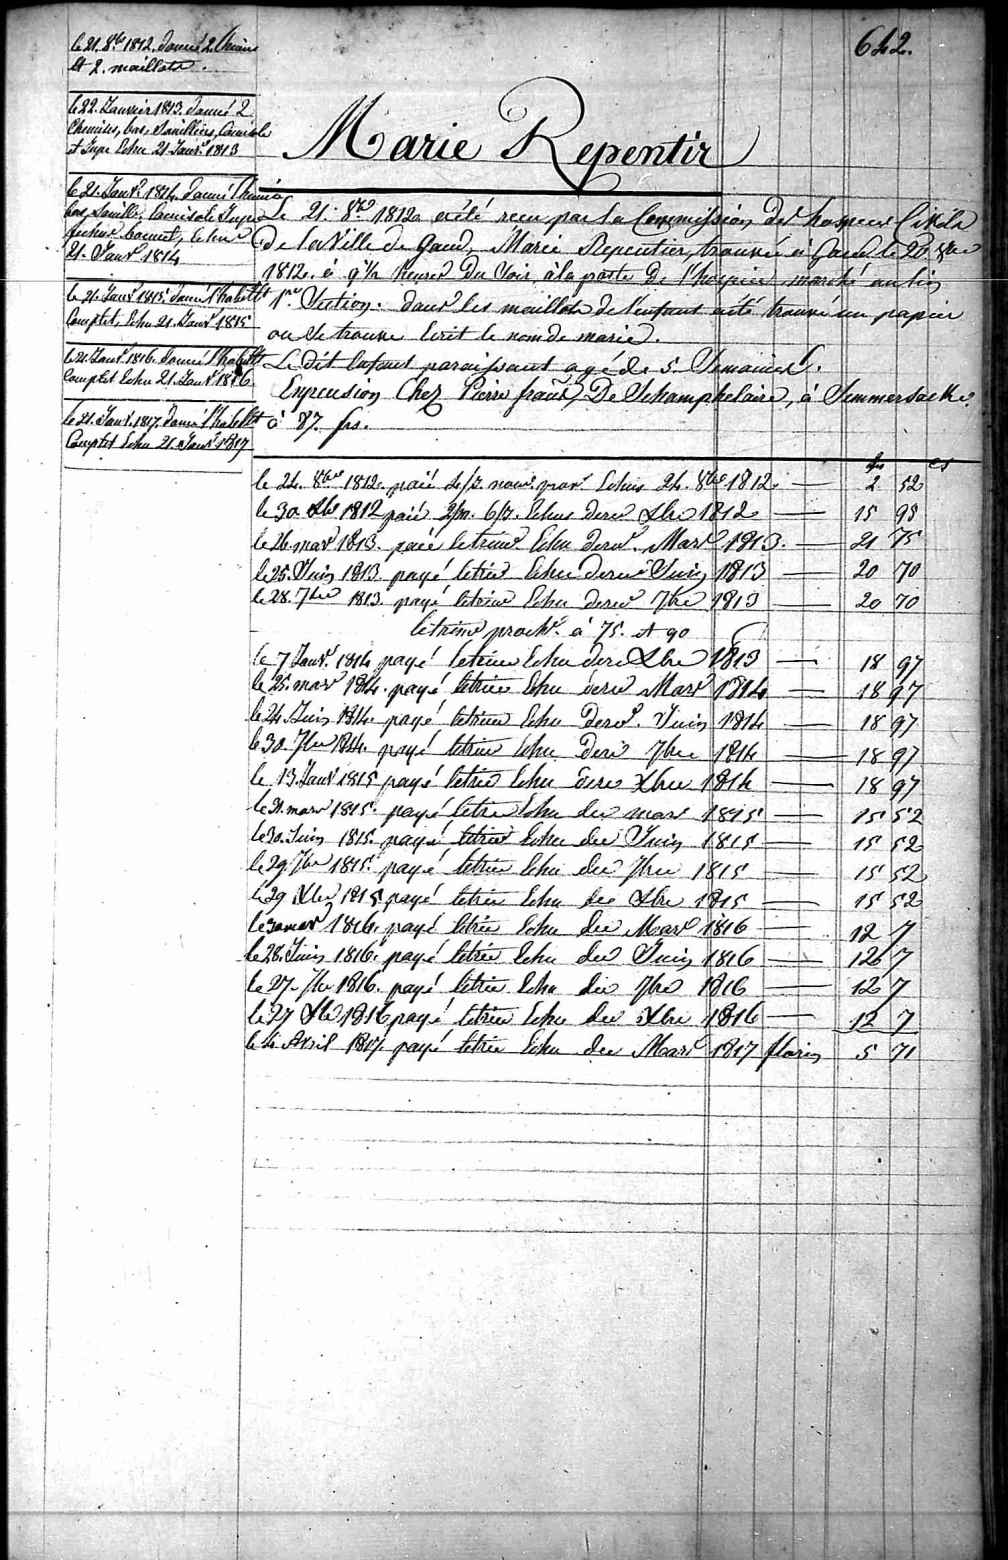 642.
le 21. 8bre 1812. donné 2. Chemis
et 2. maillots.
le 22. Janvier 1813. donné 2
Chemises, bas, Souilliers, Camisole
et Jupe Echu 21 Janr. 1813
le 21. Janr. 1814. donné Chemise
bas, Souill. Camisole Jupe
bonnet, Echu
21. Janr 1814
le 21. Janr 1815. donné l'habillt
Complet, Echu 21. Janr 1815
le 21. Janr. 1816. donné l'habillt
Complet Echu 21. Janr 1816
le 21. Janr. 1817. donné l'habillt
Complet Echu 21. Janr 1817
Marie Repentir
Le 21. 8bre 1812 a été recu par la Commission des hospices Civils
de la Ville de Gand, Marie Repentir, trouvée à Gand le 20. 8bre
1812. à 9½ heures du Soir, à la porte de l'hospice, marché au lin
1re Section. dans les maillots de l'enfant a été trouvé un papier
ou se trouve Ecrit le nom de marie.
Le dit Enfant paraissant agé de 5. Semaines.
En pension Chez Pierre franç. De Schamphelaire, à Semmersacke
à 87. frs.
fs cs
le 24. 8bre 1812. paié Echus 24. 8bre 1812. — 2 52
le 30 Xbre 1812 paié Echus Xbre 1812 — 15 95
le 26 mars 1813. paié le trime Echu Mars 1813. — 21 75
le 25. Juin 1813 payé le trime Echu Juin 1813 — 20 70
le 28. 7bre 1813 payé le trime Echu 7bre 1813 — 20 70
le trime proch. à 75. et 90
le 7 Janr. 1814 payé le trime Echu Xbre 1813 — 18 97
le 25. mars 1814. payé le trime Echu Mars 1814 — 18 97
le 24. Juin 1814. payé le trime Echu Juin 1814 — 18 97
le 30. 7bre 1814. payé le trime Echu 7bre 1814 — 18 97
le 13. Janr 1815 payé le trime Echu Xbre 1814 — 18 97
le 31. mars 1815. payé le trime Echu mars 1815 — 15 52
le 30. Juin 1815. payé le trime Echu Juin 1815 — 15 52
le 29 7bre 1815. payé le trime Echu 7bre 1815 — 15 52
le 29 Xbre 1815 payé le trime Echu Xbre 1815 — 15 52
le 30 mars 1816. payé le trime Echu Mars 1816 — 12 7
le 28. Juin 1816. payé le trime Echu Juin 1816 — 12 7
le 27. 7bre 1816. payé le trime Echu 7bre 1816 — 12 7
le 27 Xbre 1816 payé le trime Echu Xbre 1816 — 12 7
le 4 Avril 1817. payé le trime Echu Mars 1817 florins 5 71